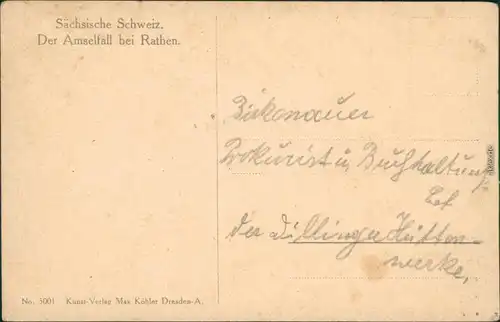 Sächsische Schweiz.
Der Amselfall bei Rathen.
Birkenauer
Prokurist u. Buchhaltung
bei
der Dillinger Hütten-
werke,
No. 5001 Kunst-Verlag Max Köhler Dresden-A.